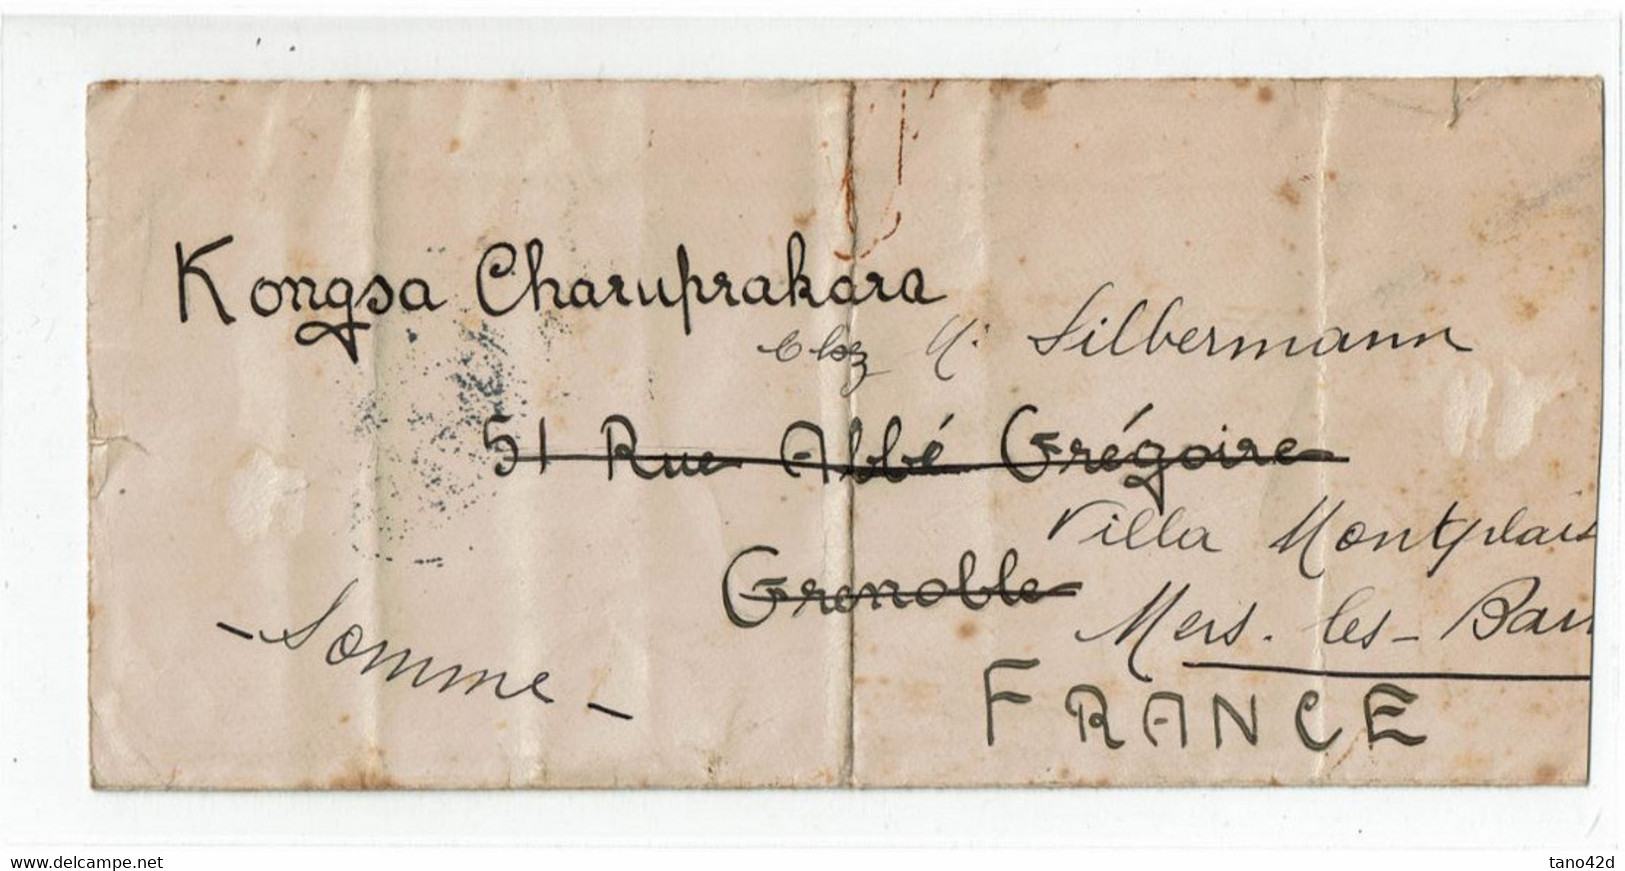 Kongsa Charuprakara
chez M. Silbermann
51 Rue Abbé Grégoire
Villa Montplais
Grenoble
Mers-les-Bai
- Somme -
FRANCE
www.delcampe.net
tano42d